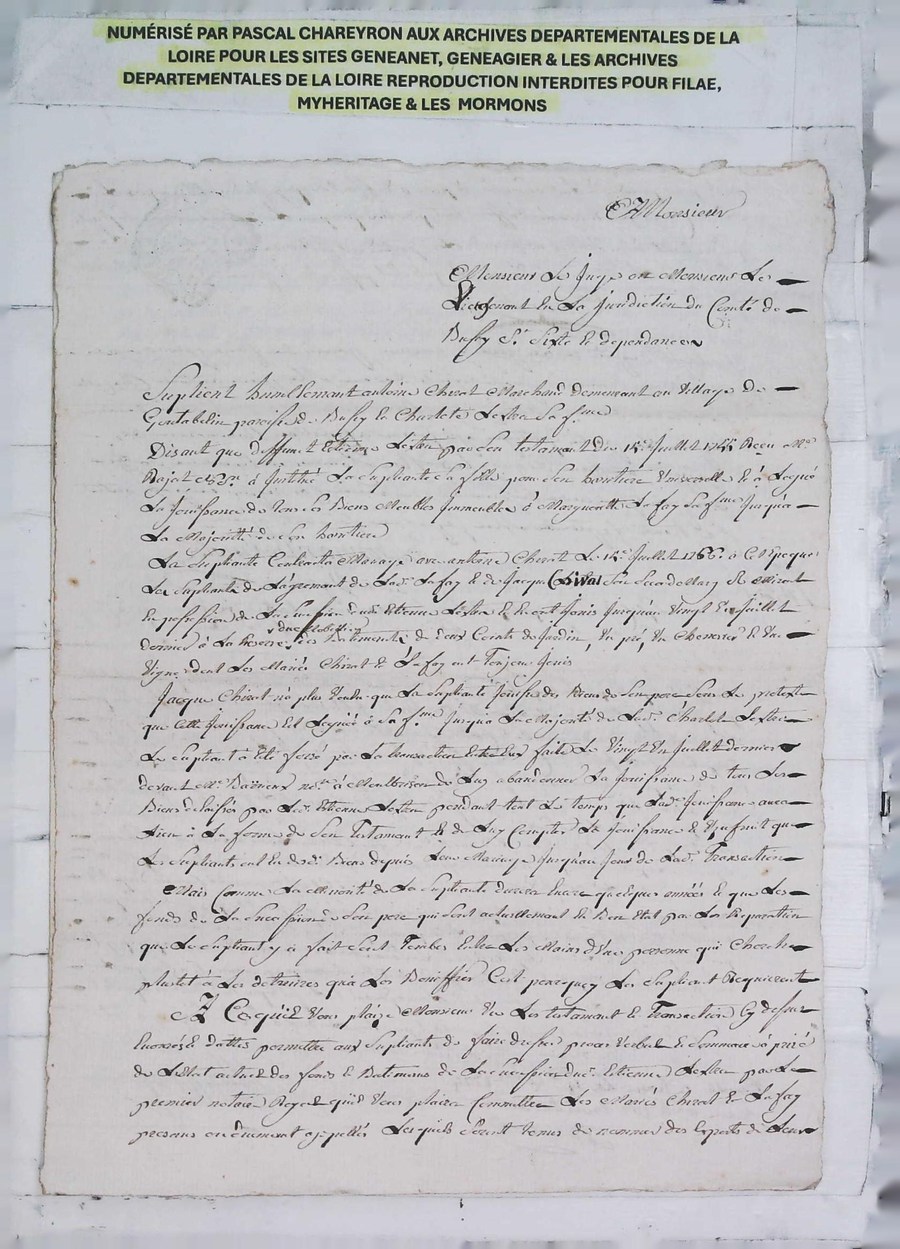 NUMÉRISÉ PAR PASCAL CHAREYRON AUX ARCHIVES DEPARTEMENTALES DE LA
LOIRE POUR LES SITES GENEANET, GENEAGIER & LES ARCHIVES
DEPARTEMENTALES DE LA LOIRE REPRODUCTION INTERDITES POUR FILAE,
MYHERITAGE & LES MORMONS
Monsieur
Monsieur Le Juge ou Monsieur Le
Lieutenant En La Juridiction du Comté de
Bussy St Sixte et dependances
Suplient humblement antoine Chirat Marchand demeurant au Village de
paroisse de Bussy et Charlote sa fme
Disant que deffunt Etienne par son testament du 14e Juillet Reçu Me
Institué La Supliante Sa fille pour Son héritiere Universelle Et à Legué
La Jouissance de tous Ses Biens Meubles Immeubles à Marguerite La fay Sa fme Jusqua
La Majorité de Son héritiere
La Supliante Contracta Mariage avec antoine Chirat Le 14e Juillet 1766 à Cet Epoque
Les Supliants de Lagrement de Lad. La fay Et de Jacque Son Second Mary Se Mirent
En possession de La Succession dud. Etienne Et En ont Jouis Jusquau Vingt Un Juillet
dernier à La Reserve des Batiments, de deux Coins de Jardin, Un pré, Un Chenevier Et Une
Vigne dont Les Mariés Chirat Et La fay ont Toujour Jouis
Jacque Chirat n'a plus Voulu que La Supliante Jouisse des Biens de Son pere Sous Le pretexte
que Cette Jouissance Est Leguée à Sa fme Jusqua La Majorité de Lad. Charlote
Le Supliant à Eté forcé par La transaction Entre Eux faite Le Vingt Un Juillet dernier
devant Me nore à Montbrison de Luy abandonner La Jouissance de tous Les
Biens delaissés par led. Etienne pendant tout Le temps que Lad. Jouissance aura
Lieu à La forme de Son Testament Et de Luy Compter La Jouissance Et Usufruit que
Les Supliants ont Eu desd. Biens depuis Leur Mariage Jusquau Jour de Lad. Transaction
Mais Comme La Minorité de La Supliante durera Encore quelques années Et que Les
fonds de La Succession de Son pere qui Sont actuellement En Bon Etat par Les Reparations
que Le Supliant y à fait Sont Tombés Entre Les Mains d'Une personne qui Cherche
plustot à Les detruires qua Les Beneffier C'est pourquoy Les Supliant Requierent
à Ce quil Vous plaise Monsieur Vu Les testamant Et Transaction Cy dessus
Enoncés Et dattés permettre aux Supliants de faire dresser procès Verbal Et Sommaire à prise
de L'Etat actuel des fonds Et Batiments de La Succession dud. Etienne par Le
premier notaire Royal quil Vous plaira Commettre Les Mariés Chirat Et La fay
presens ou duement appellés Lesquels Seront tenus de nommer des Experts de Leur